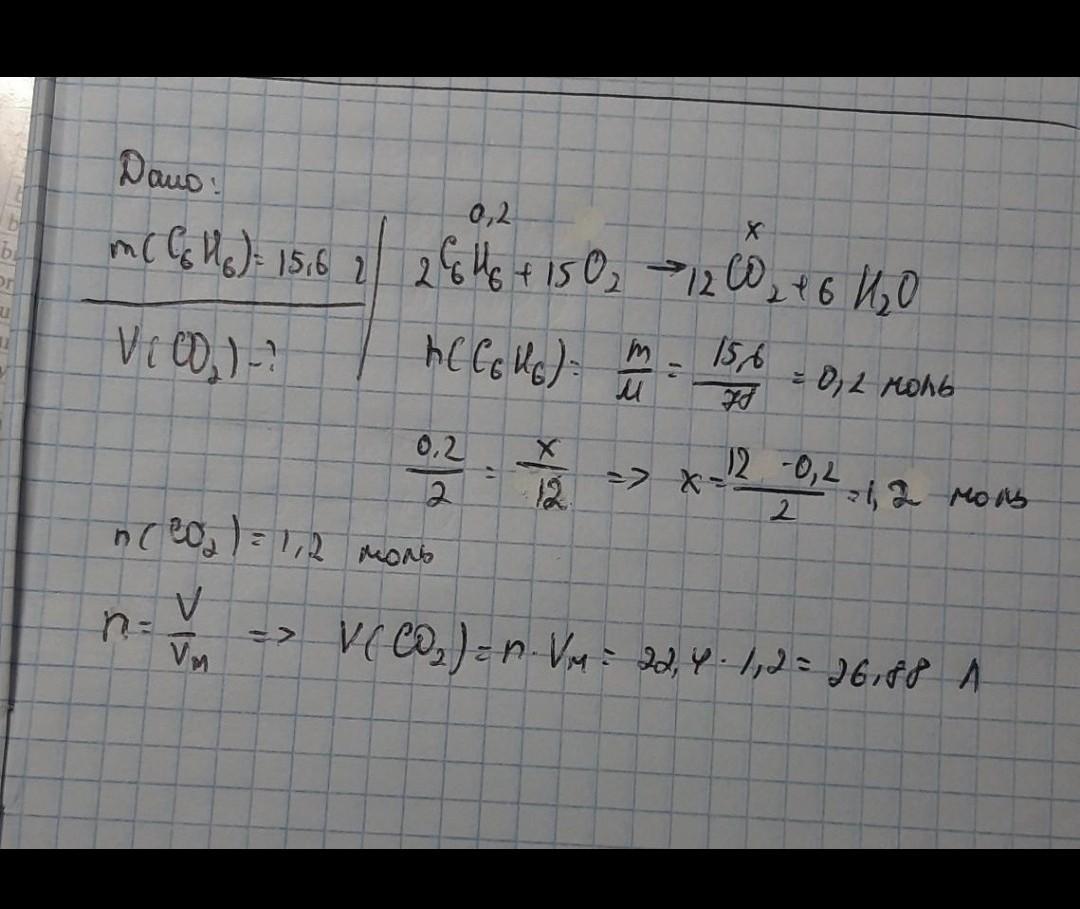 Дано:
m(C₆H₆)= 15,6 г
V(CO₂)-?
0,2 x
2C₆H₆ + 15O₂ → 12CO₂ + 6 H₂O
n(C₆H₆)= m/M = 15,6/78 = 0,2 моль
0,2/2 = x/12 => x = 12 · 0,2/2 = 1,2 моль
n(CO₂) = 1,2 моль
n = V/Vм => V(CO₂) = n · Vм = 22,4 · 1,2 = 26,88 л